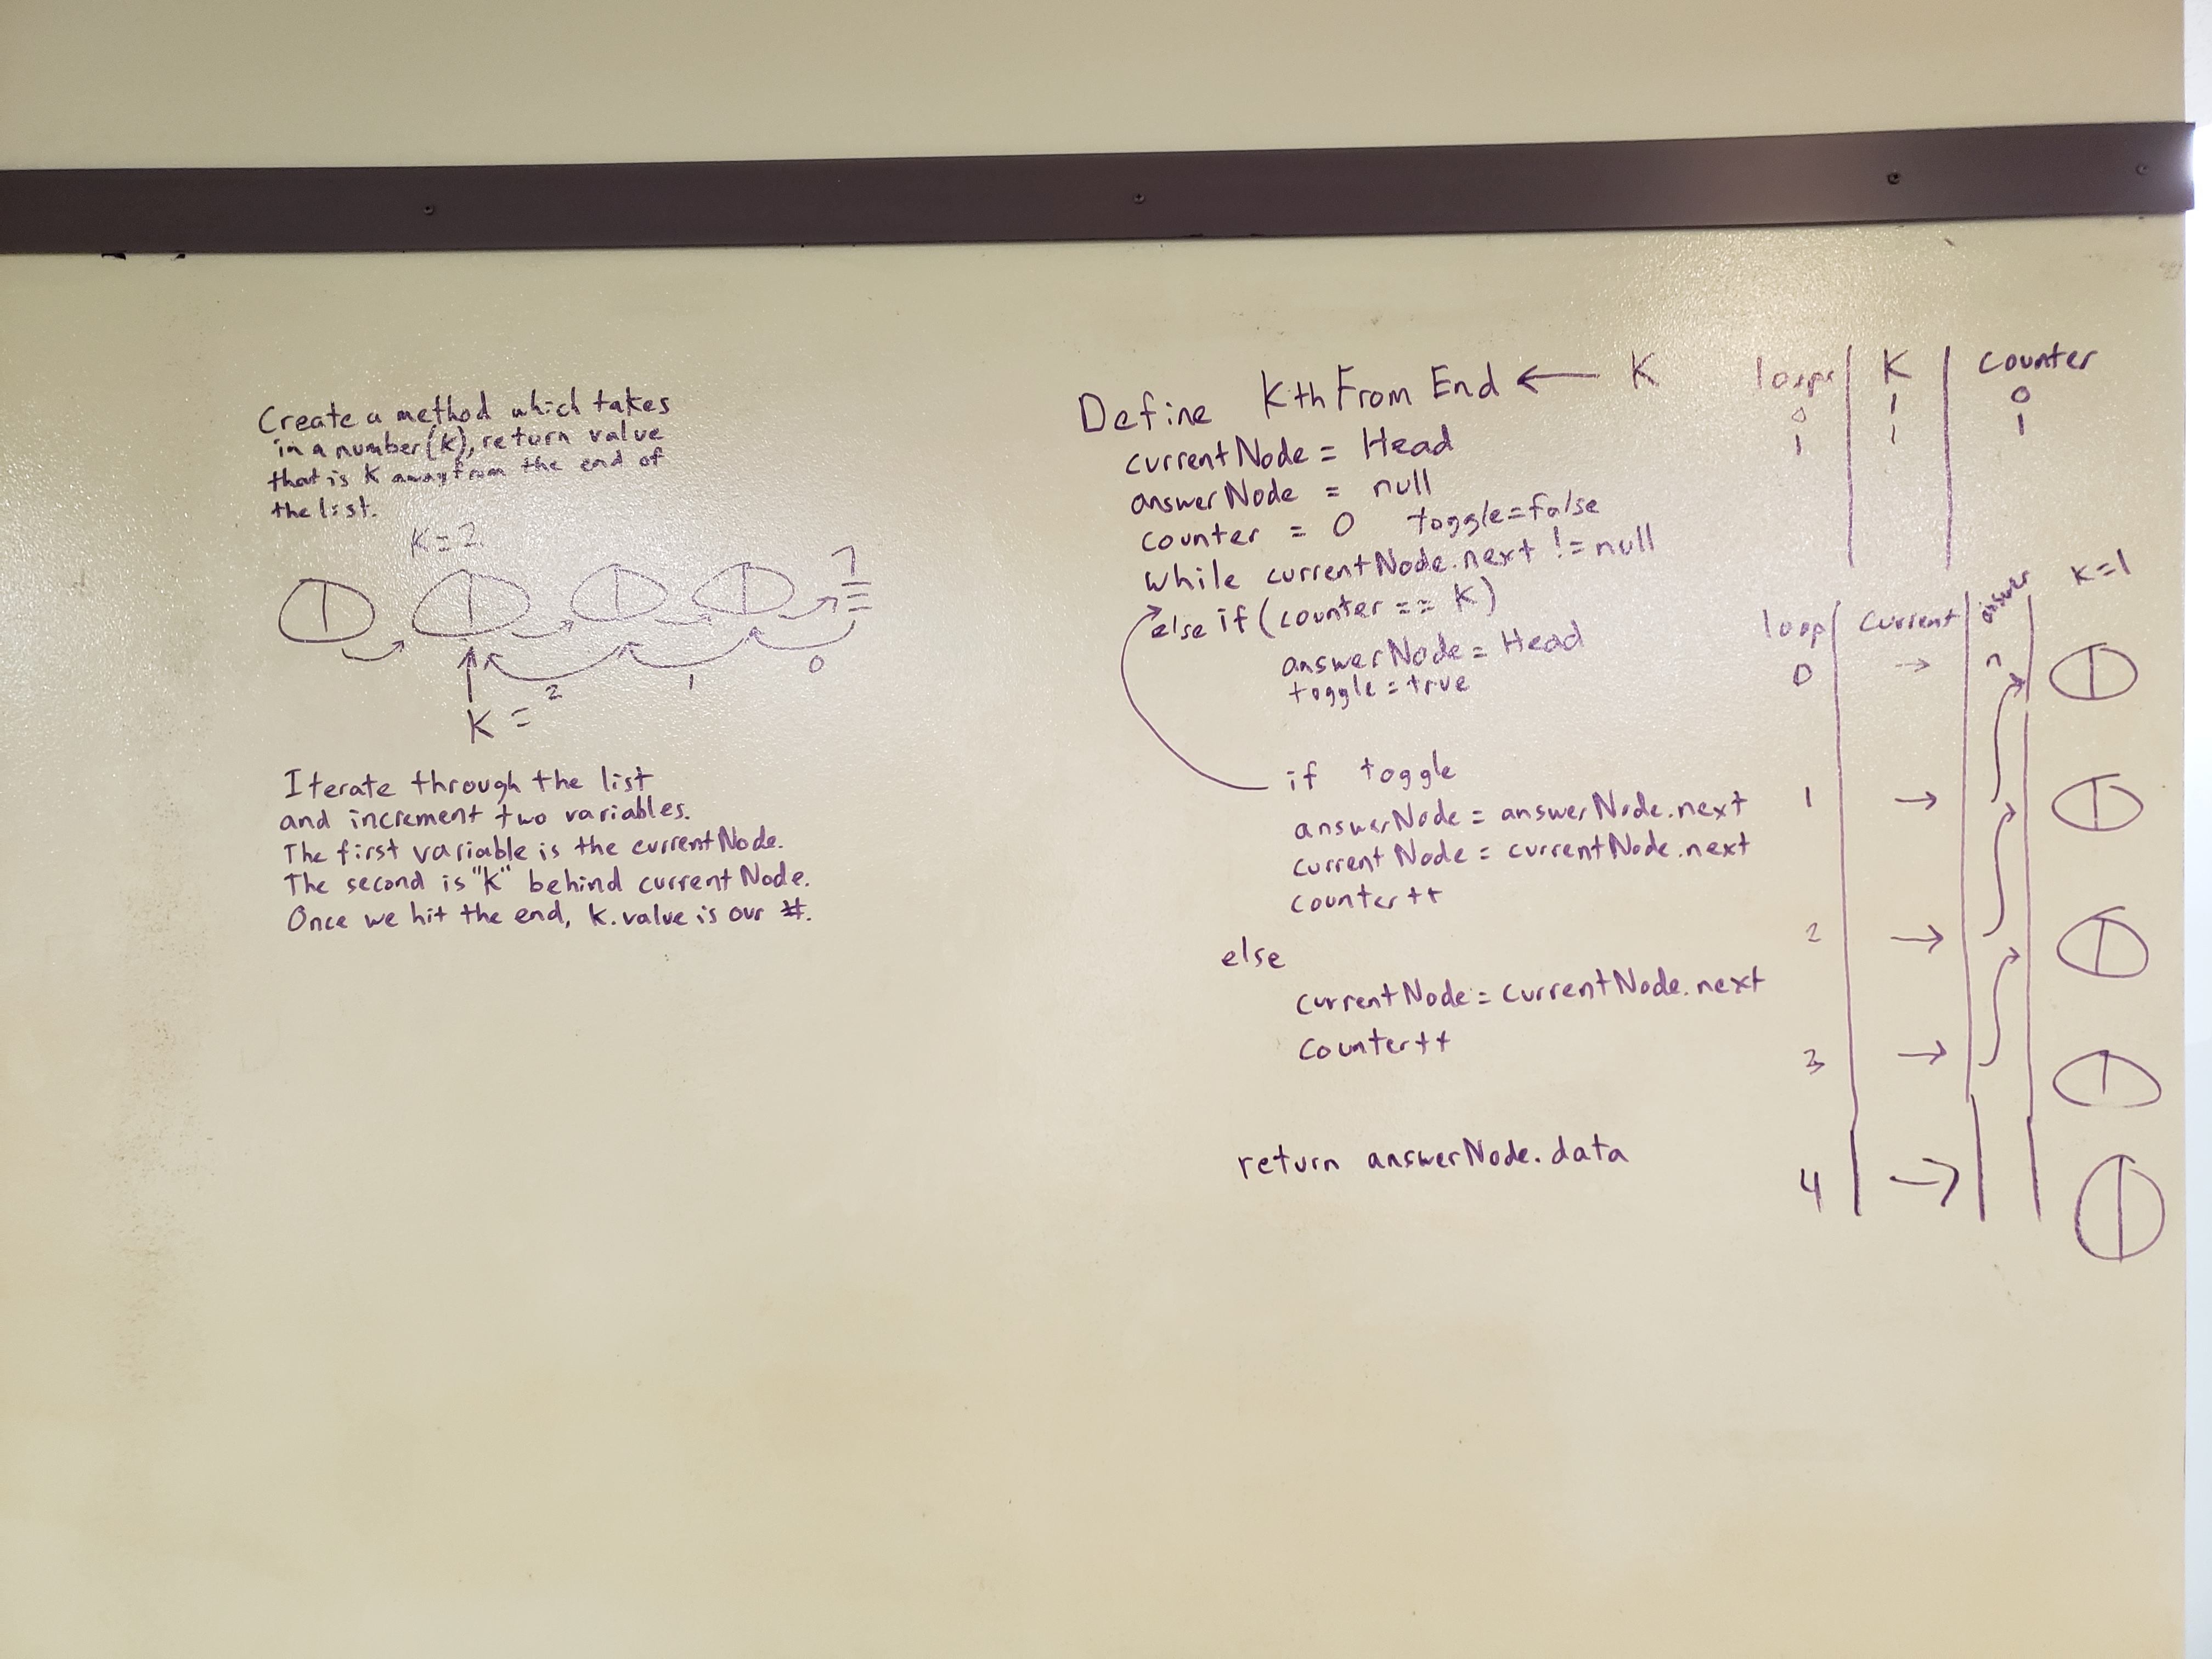 Create a method which takes
in a number (k), return value
that is K away from the end of
the list.
K=2
2 1 0
K =
Iterate through the list
and increment two variables.
The first variable is the currentNode.
The second is "K" behind currentNode.
Once we hit the end, k.value is our #.
Define KthFromEnd ← K
currentNode = Head
answerNode = null
counter = 0 toggle=false
while currentNode.next != null
else if (counter == K)
answerNode = Head
toggle = true
if toggle
answerNode = answerNode.next
currentNode = currentNode.next
counter++
else
currentNode = currentNode.next
Counter++
return answerNode.data
loops K counter
0 1 0
1 1 1
K=1
loop Current answer
0 → n
1 →
2 →
3 →
4 →